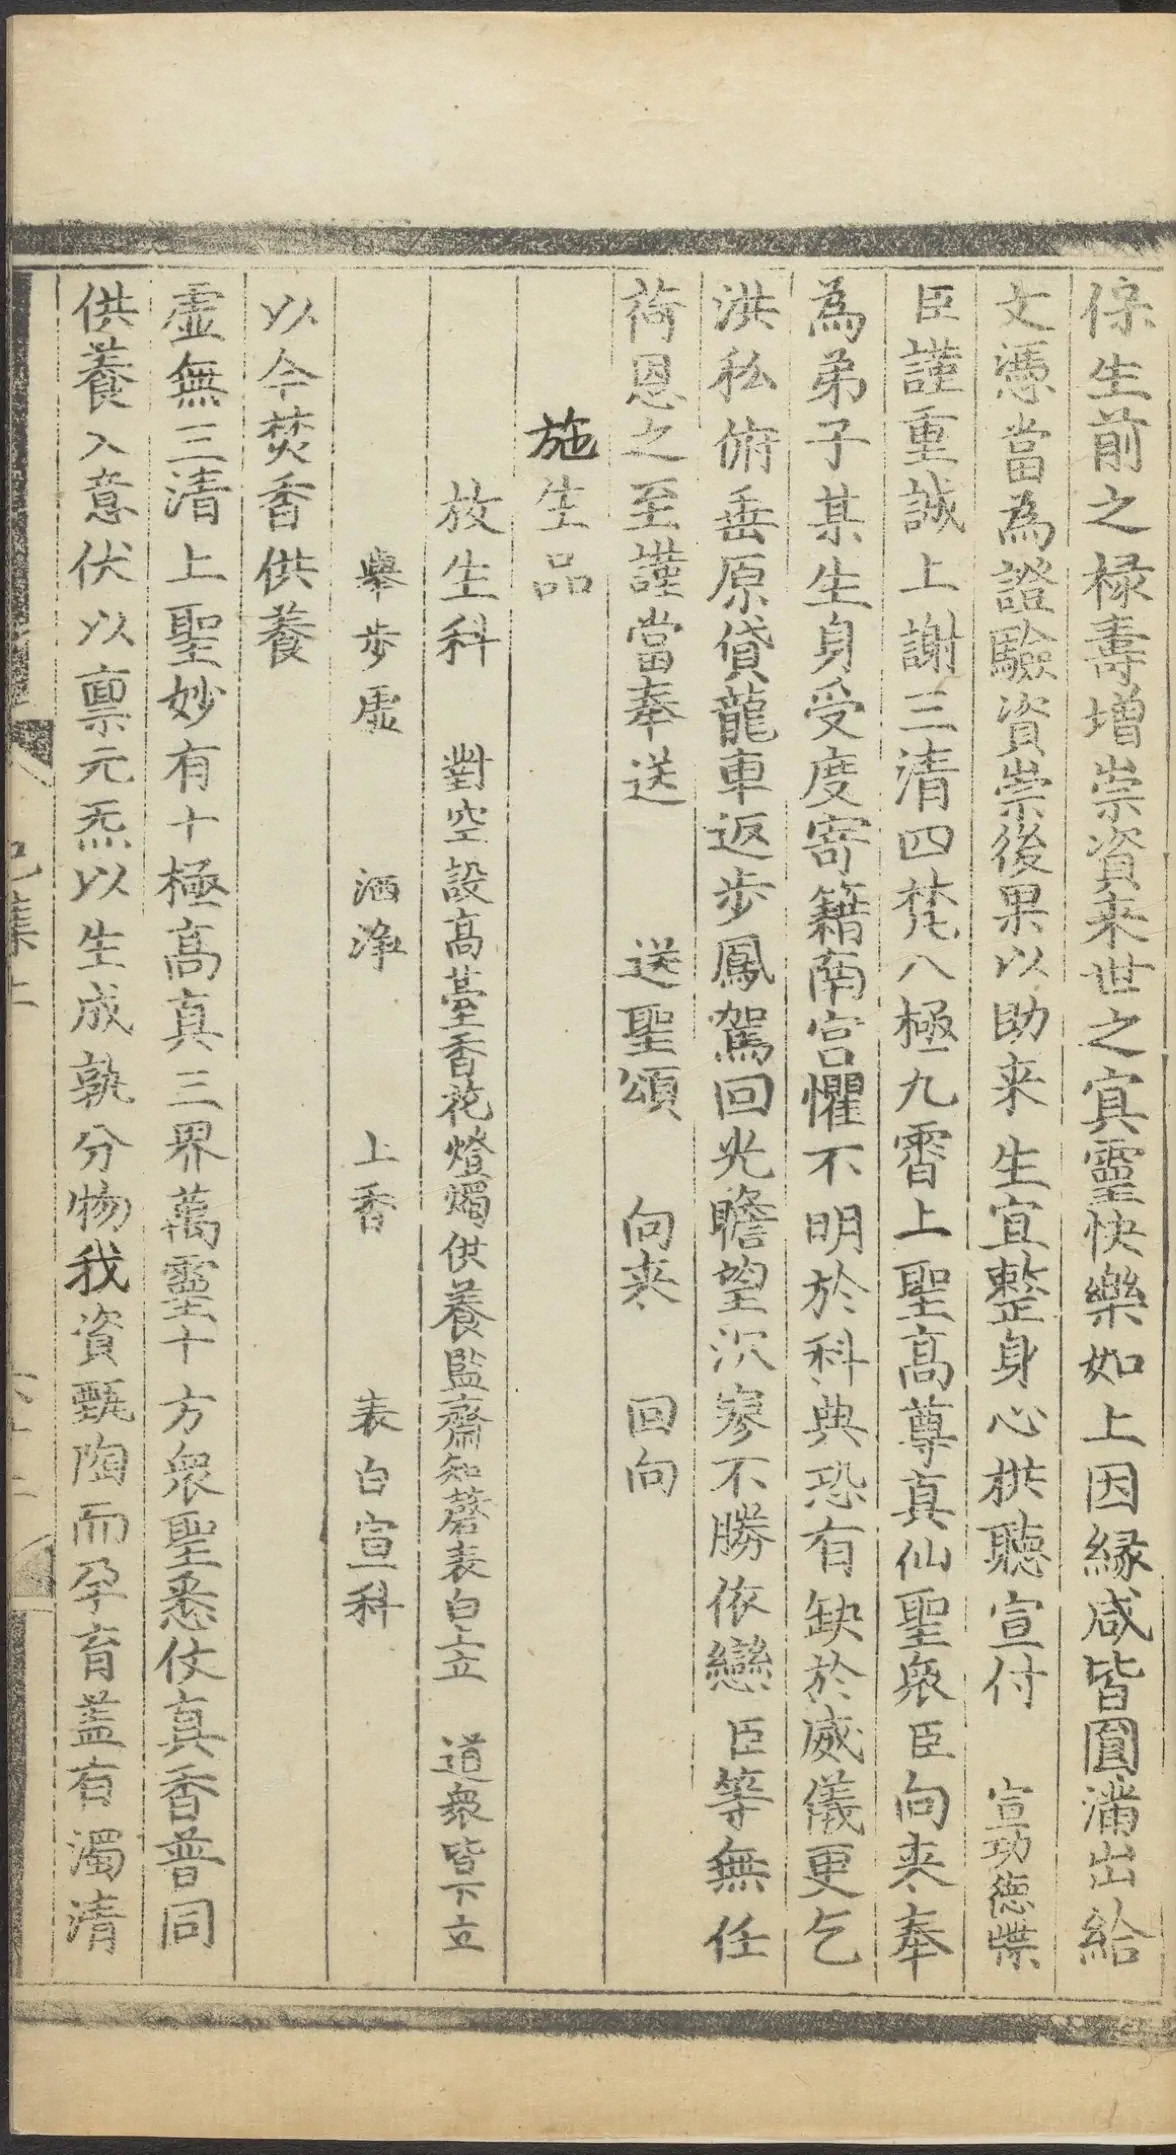 保生前之祿壽增崇資来世之㝠靈快樂如上因緣咸皆圓滿出給
文憑當為證驗資崇後果以助来生宜整身心拱聽宣付　宣功德牒
臣謹重誠上謝三清四梵八極九霄上聖高尊真仙聖衆臣向来奉
為弟子某生身受度寄籍南宫懼不明於科典恐有缺於威儀更乞
洪私俯垂原貸龍車返步鳳駕回光瞻望沉寥不勝依戀臣等無任
荷恩之至謹當奉送　送聖頌　向来　回向
施生品
放生科　對空設高臺香花燈燭供養監齋知磬表白上立　道衆皆下立
舉步虛　洒净　上香　表白宣科
以今焚香供養
虛無三清上聖妙有十極高真三界萬靈十方衆聖悉仗真香普同
供養入意伏以禀元炁以生成孰分物我資甄陶而孕育蓋有濁清